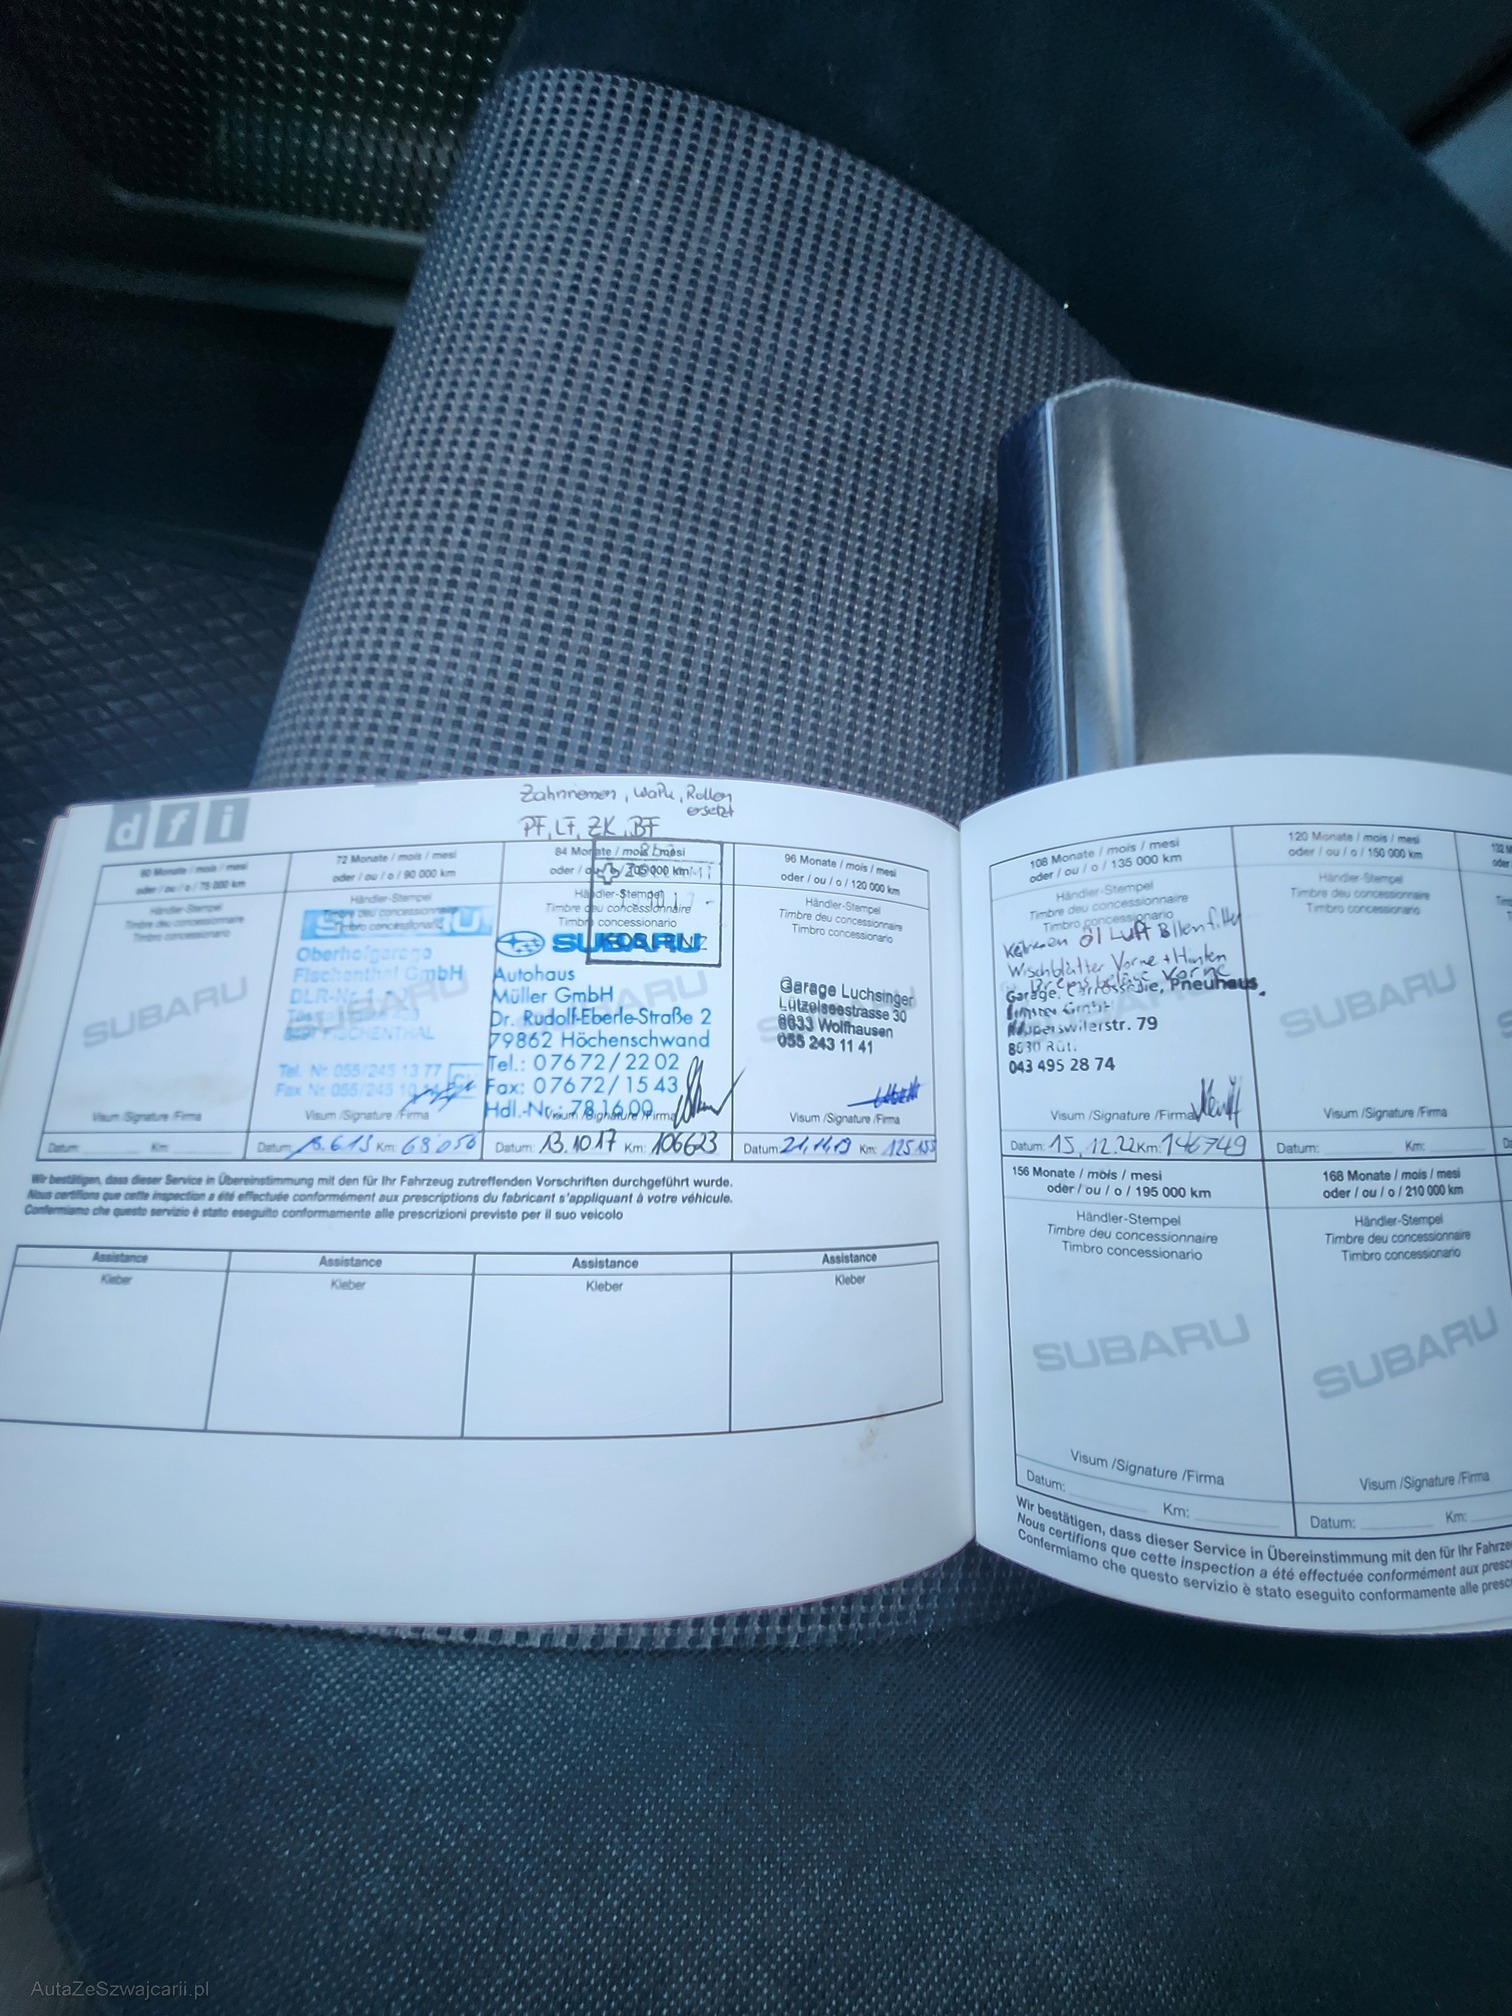 dfi
Zahnriemen, WaPu, Rollen
ersetzt
PF, LF, ZK, BF
60 Monate / mois / mesi
oder / ou / o / 75 000 km
Händler-Stempel
Timbre deu concessionnaire
Timbro concessionario
SUBARU
Visum /Signature /Firma
Datum: Km:
72 Monate / mois / mesi
oder / ou / o / 90 000 km
Händler-Stempel
Timbre deu concessionnaire
Timbro concessionario
SUBARU
Oberhofgarage
Fischenthal GmbH
FISCHENTHAL
Tel. Nr 055/245 13 77
Fax Nr 055/245
Visum /Signature /Firma
Datum: Km: 68'050
84 Monate / mois / mesi
oder / ou / o / 105 000 km
Händler-Stempel
Timbre deu concessionnaire
Timbro concessionario
SUBARU
Autohaus
Müller GmbH
Dr. Rudolf-Eberle-Straße 2
79862 Höchenschwand
Tel.: 0 76 72 / 22 02
Fax: 0 76 72 / 15 43
Hdl.-Nr.: 78 16 00
Visum /Signature /Firma
Datum: 13.10.17 Km: 106623
96 Monate / mois / mesi
oder / ou / o / 120 000 km
Händler-Stempel
Timbre deu concessionnaire
Timbro concessionario
Garage Luchsinger
Lützelseestrasse 30
8633 Wolfhausen
055 243 11 41
Visum /Signature /Firma
Datum: Km: 125
Wir bestätigen, dass dieser Service in Übereinstimmung mit den für Ihr Fahrzeug zutreffenden Vorschriften durchgeführt wurde.
Nous certifions que cette inspection a été effectuée conformément aux prescriptions du fabricant s'appliquant à votre véhicule.
Confermiamo che questo servizio è stato eseguito conformamente alle prescrizioni previste per il suo veicolo
Assistance Assistance Assistance Assistance
Kleber Kleber Kleber Kleber
108 Monate / mois / mesi
oder / ou / o / 135 000 km
Händler-Stempel
Timbre deu concessionnaire
Timbro concessionario
Öl Luft
Wischblätter Vorne + Hinten
Vorne
Garage, Carrosserie, Pneuhaus
79
8630 Rüti
043 495 28 74
Visum /Signature /Firma
Datum: 15.12.22 Km: 146749
120 Monate / mois / mesi
oder / ou / o / 150 000 km
Händler-Stempel
Timbre deu concessionnaire
Timbro concessionario
SUBARU
Visum /Signature /Firma
Datum: Km:
156 Monate / mois / mesi
oder / ou / o / 195 000 km
Händler-Stempel
Timbre deu concessionnaire
Timbro concessionario
SUBARU
Visum /Signature /Firma
Datum: Km:
168 Monate / mois / mesi
oder / ou / o / 210 000 km
Händler-Stempel
Timbre deu concessionnaire
Timbro concessionario
SUBARU
Visum /Signature /Firma
Datum: Km:
Wir bestätigen, dass dieser Service in Übereinstimmung mit den für Ihr
Nous certifions que cette inspection a été effectuée conformément aux
Confermiamo che questo servizio è stato eseguito conformamente alle
AutaZeSzwajcarii.pl